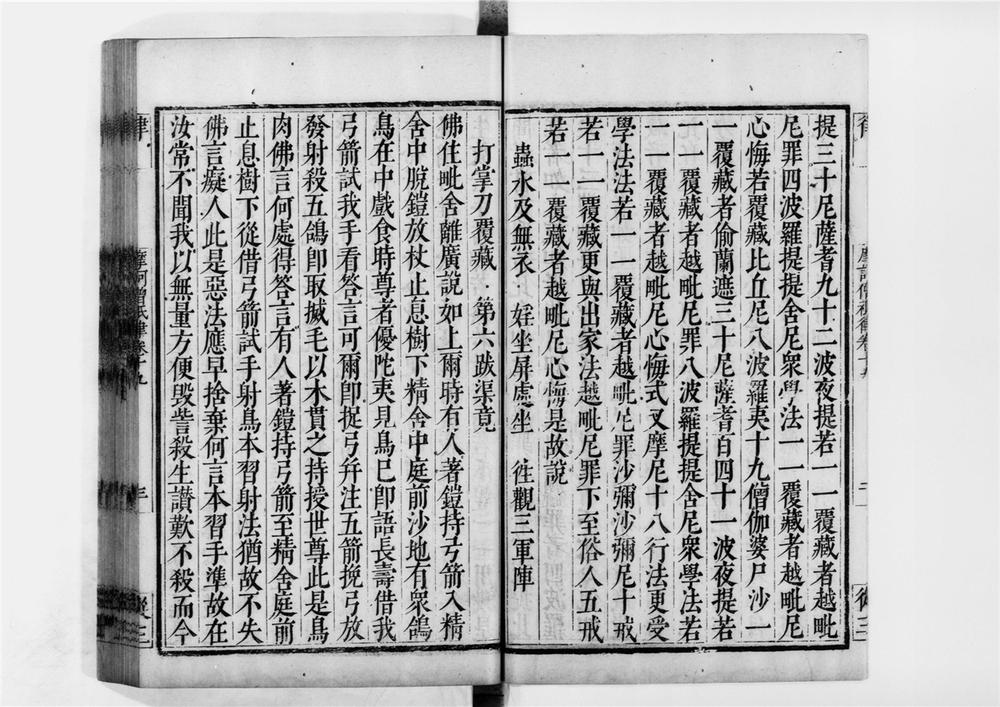 提三十尼薩耆九十二波夜提若一一覆藏者越毗
尼罪四波羅提提舍尼衆學法一一覆藏者越毗尼
心悔若覆藏比丘尼八波羅夷十九僧伽婆尸沙一
一覆藏者偷蘭遮三十尼薩耆百四十一波夜提若
一一覆藏者越毗尼罪八波羅提提舍尼衆學法若
一一覆藏者越毗尼心悔式叉摩尼十八行法更受
學法法若一一覆藏者越毗尼罪沙彌沙彌尼十戒
若一一覆藏更與出家法越毗尼罪下至俗人五戒
若一一覆藏者越毗尼心悔是故說
蟲水及無衣 婬坐屏處坐 徃觀三軍陣
打掌刀覆藏 第六跋渠竟
佛住毗舍離廣說如上爾時有人著鎧持弓箭入精
舍中脫鎧放杖止息樹下精舍中庭前沙地有衆鴿
鳥在中戲食時尊者優陀夷見鳥已卽語長壽借我
弓箭試我手看答言可爾卽捉弓幷注五箭挽弓放
發射殺五鴿卽取搣毛以木貫之持授世尊此是鳥
肉佛言何處得答言有人著鎧持弓箭至精舍庭前
止息樹下從借弓箭試手射鳥本習射法猶故不失
佛言癡人此是惡法應早捨棄何言本習手準故在
汝常不聞我以無量方便毀呰殺生讃歎不殺而今